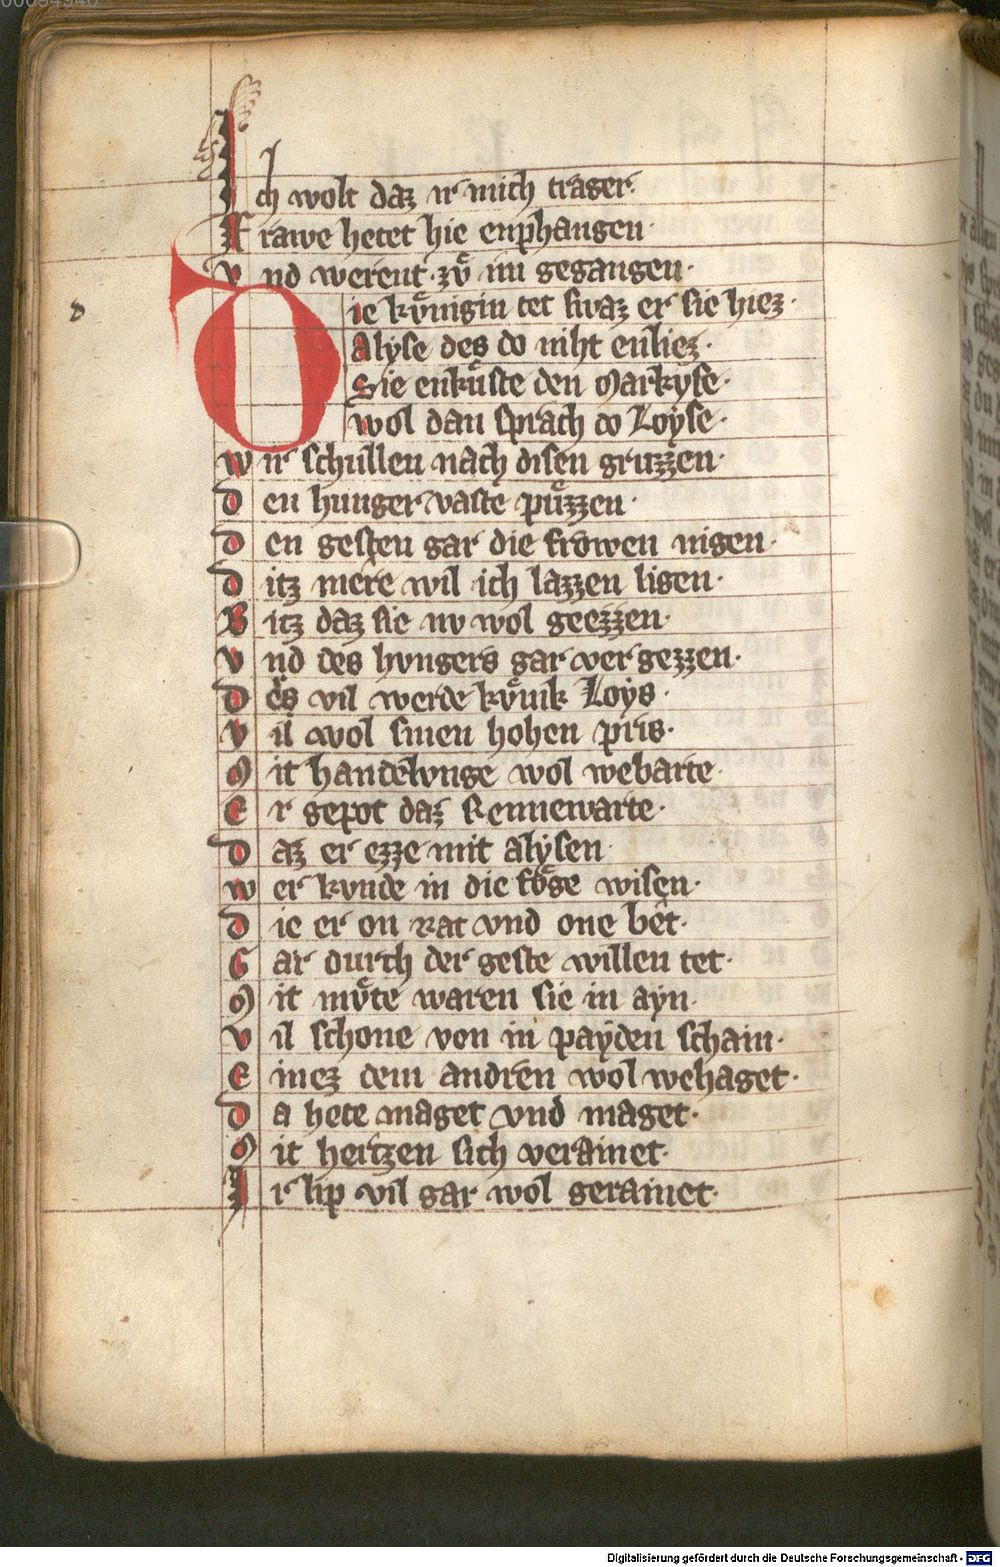 Ich wolt daz ir mich trager·
Frawe hetet hie enphangen·
Vnd werent· zuͦ im gegangen·
d
Die kvͤnigin tet swaz er sie hiez·
Alyse des do niht enliez·
Sie enkuͤste den Markyse·
Wol dan sprach do Loyse·
Wir schullen nach disen gruzzen·
Den hunger vaste puͤzzen·
Den gesten gar die frowen nigen·
Ditz mere wil ich lazzen ligen·
Bitz daz sie nv wol geezzen·
Vnd des hvngers gar vergezzen·
Des vil werde kvͤnik Loys·
Vil wol sinen hohen pris·
Mit handelvnge wol webarte·
Er gepot daz Rennewarte·
Daz er ezze mit alysen·
Wer kvnde in die fvͦge wisen·
Die er on rat vnd one bet·
Gar durch der geste willen tet·
Mit mvͦte waren sie in ayn·
Vil schone von in payden schain·
Einez dem andren wol wehaget·
Da hete maget vnd maget·
Mit hertzen sich verainet·
Ir lip vil gar wol gerainet·
Digitalisierung gefördert durch die Deutsche Forschungsgemeinschaft - DFG